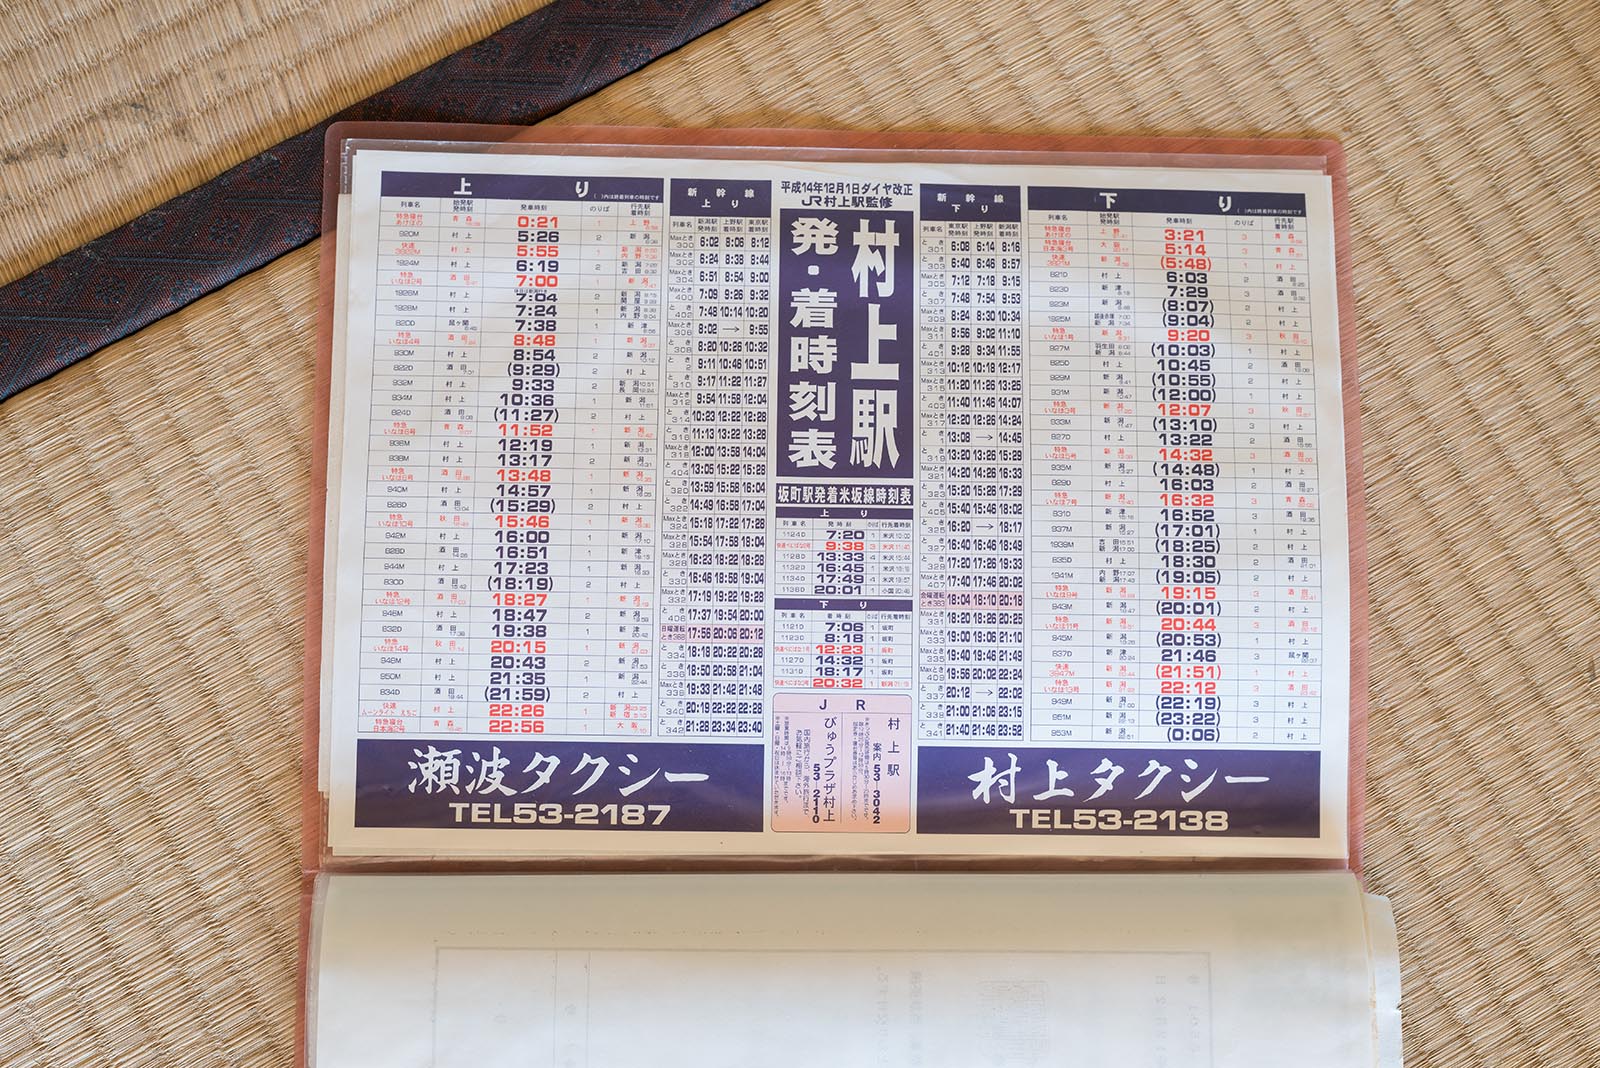 上り
( )内は終着列車の時刻です
列車名 始発駅発時刻 発車時刻 のりば 行先駅着時刻
特急寝台あけぼの 青森 0:21 1 上野
920M 村上 5:26 2 新潟
快速 村上 5:55 1 新潟 内野
1924M 村上 6:19 2 新潟 吉田
特急いなほ2号 酒田 7:00 1 新潟
1926M 村上 7:04 2 新潟 関屋
1928M 村上 7:24 新潟 内野
820D 鼠ヶ関 7:38 1 新津
特急いなほ4号 酒田 8:48 1 新潟
930M 村上 8:54 2 新潟
822D 酒田 (9:29) 2 村上
932M 村上 9:33 2 新潟 長岡
934M 村上 10:36 1 新潟
824D 酒田 (11:27) 2 村上
特急いなほ6号 青森 11:52 1 新潟
936M 村上 12:19 1 新潟
938M 村上 13:17 2 新潟
特急いなほ8号 酒田 13:48 1 新潟
940M 村上 14:57 1 新潟
826D 酒田 (15:29) 2 村上
特急いなほ10号 秋田 15:46 1 新潟
942M 村上 16:00 1 新潟
828D 酒田 16:51 1 新津
944M 村上 17:23 1 新潟
830D 酒田 (18:19) 2 村上
特急いなほ12号 酒田 18:27 1 新潟
946M 村上 18:47 2 新潟
832D 酒田 19:38 1 新津
特急いなほ14号 秋田 20:15 1 新潟
948M 村上 20:43 2 新潟
950M 村上 21:35 1 新潟
834D 酒田 (21:59) 2 村上
快速ムーンライトえちご 村上 22:26 1 新潟 新宿
特急寝台日本海2号 青森 22:56 1 大阪
新幹線
上り
列車名 新潟駅発時刻 上野駅着時刻 東京駅着時刻
Maxとき300 6:02 8:06 8:12
Maxとき302 6:24 8:38 8:44
Maxとき304 6:51 8:54 9:00
Maxとき400 7:09 9:26 9:32
とき402 7:48 10:14 10:20
とき306 8:02 → 9:55
とき308 8:20 10:26 10:32
とき2 9:11 10:46 10:51
とき310 9:17 11:22 11:27
Maxとき312 9:54 11:58 12:04
とき314 10:23 12:22 12:28
とき316 11:13 13:22 13:28
Maxとき318 12:00 13:58 14:04
とき404 13:05 15:22 15:28
とき320 13:59 15:58 16:04
とき322 14:49 16:58 17:04
Maxとき324 15:18 17:22 17:28
Maxとき326 15:54 17:58 18:04
とき328 16:23 18:22 18:28
とき330 16:46 18:58 19:04
Maxとき332 17:19 19:22 19:28
とき406 17:37 19:54 20:00
日曜運転とき368 17:56 20:06 20:12
とき334 18:18 20:22 20:28
とき336 18:50 20:58 21:04
Maxとき338 19:33 21:42 21:48
とき340 20:19 22:22 22:28
Maxとき342 21:26 23:34 23:40
平成14年12月1日ダイヤ改正
JR村上駅監修
村上駅
発・着時刻表
坂町駅発着米坂線時刻表
上り
列車名 発時刻 のりば 行先着時刻
1124D 7:20 1 米沢 10:00
快速べにばな2号 9:38 3 米沢 11:40
1128D 13:33 4 米沢
1132D 16:45 1 米沢
1134D 17:49 4 米沢 19:57
1138D 20:01 1 小国
下り
列車名 着時刻 のりば 行先着時刻
1121D 7:06 1 坂町
1123D 8:18 1 坂町
快速べにばな1号 12:23 1 坂町
1127D 14:32 1 坂町
1131D 18:17 1 坂町
快速べにばな3号 20:32 1 新潟
JR
村上駅
案内 53-3042
びゅうプラザ村上
53-2110
国内旅行から、海外旅行まで
お気軽にご相談下さい。
新幹線
下り
列車名 東京駅発時刻 上野駅発時刻 新潟駅着時刻
とき301 6:08 6:14 8:16
とき303 6:40 6:46 8:57
Maxとき305 7:12 7:18 9:15
とき307 7:48 7:54 9:53
Maxとき309 8:24 8:30 10:34
Maxとき311 8:56 9:02 11:10
とき401 9:28 9:34 11:55
Maxとき313 10:12 10:18 12:17
Maxとき315 11:20 11:26 13:25
とき403 11:40 11:46 14:07
Maxとき317 12:20 12:26 14:31
とき1 13:08 → 14:45
とき319 13:20 13:26 15:29
Maxとき321 14:20 14:26 16:33
とき323 15:20 15:26 17:29
とき405 15:40 15:46 18:02
とき325 16:20 → 18:17
とき327 16:40 16:46 18:49
とき329 17:20 17:26 19:33
とき407 17:40 17:46 20:02
金曜運転とき363 18:04 18:10 20:18
Maxとき331 18:20 18:26 20:25
Maxとき333 19:00 19:06 21:10
とき335 19:40 19:46 21:49
Maxとき409 19:56 20:02 22:24
とき337 20:12 → 22:02
とき339 21:00 21:06 23:15
とき341 21:40 21:46 23:52
下り
( )内は終着列車の時刻です
列車名 始発駅発時刻 発車時刻 のりば 行先駅着時刻
特急寝台あけぼの 上野 3:21 3 青森
特急寝台日本海3号 大阪 5:14 3 青森
快速 新潟 (5:48) 1 村上
821D 村上 6:03 2 酒田
823D 新津 7:29 3 酒田
923M 新潟 (8:07) 2 村上
1925M 越後赤塚 新潟 (9:04) 2 村上
特急いなほ1号 新潟 9:20 3 秋田
927M 羽生田 新潟 (10:03) 1 村上
825D 村上 10:45 2 酒田
929M 新潟 (10:55) 2 村上
931M 新潟 (12:00) 1 村上
特急いなほ3号 新潟 12:07 3 秋田
933M 新潟 (13:10) 2 村上
827D 村上 13:22 2 酒田
特急いなほ5号 新潟 14:32 3 酒田
935M 新潟 (14:48) 1 村上
829D 村上 16:03 2 酒田
特急いなほ7号 新潟 16:32 3 青森
831D 新津 16:52 3 酒田
937M 新潟 (17:01) 1 村上
1939M 吉田 新潟 (18:25) 2 村上
835D 村上 18:30 2 酒田
1941M 内野 新潟 (19:05) 2 村上
特急いなほ9号 新潟 19:15 3 酒田
943M 新潟 (20:01) 2 村上
特急いなほ11号 新潟 20:44 3 酒田
945M 新潟 (20:53) 1 村上
837D 新津 21:46 3 鼠ヶ関
快速3947M 新潟 (21:51) 1 村上
特急いなほ13号 新潟 22:12 3 酒田
949M 新潟 (22:19) 2 村上
951M 新潟 (23:22) 1 村上
953M 新潟 (0:06) 2 村上
瀬波タクシー
TEL53-2187
村上タクシー
TEL53-2138